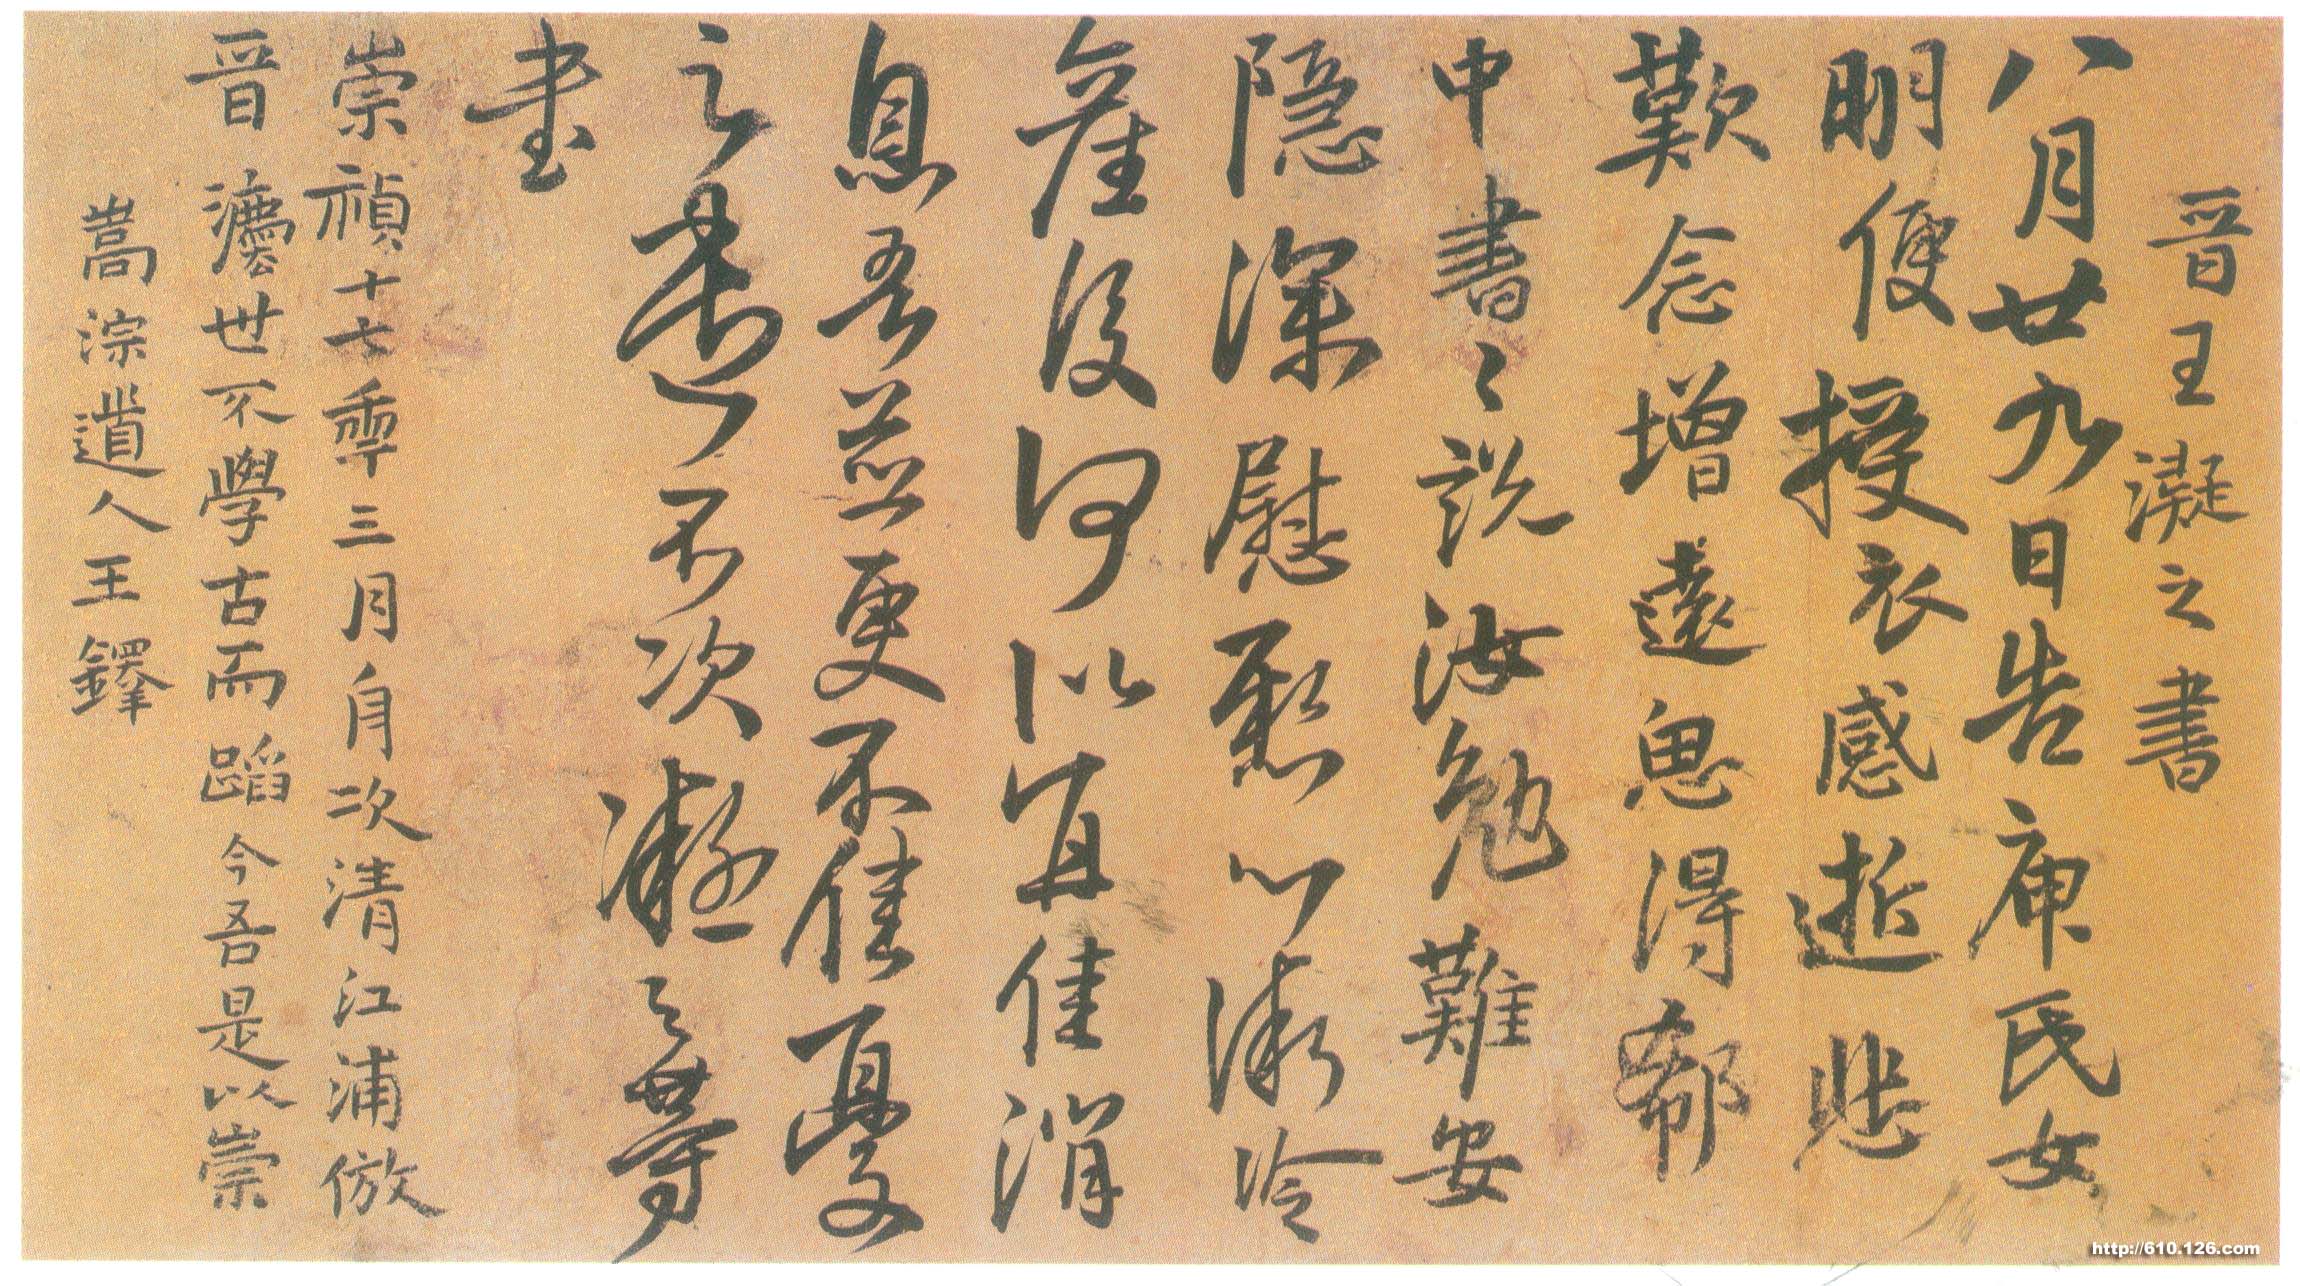 晋王凝之書
八月廿九日告庾氏女
明便授衣感逝悲
歎念增遠思得郗
中書〻說汝勉難安
隱深慰懸心漸冷
產後何以宜佳消
息吾並更不佳憂
之盡不次凝之等
書
崇禎十七年三月舟次清江浦倣
晋灋世不學古而蹈今吾是以崇
嵩淙道人王鐸
http://610.126.com